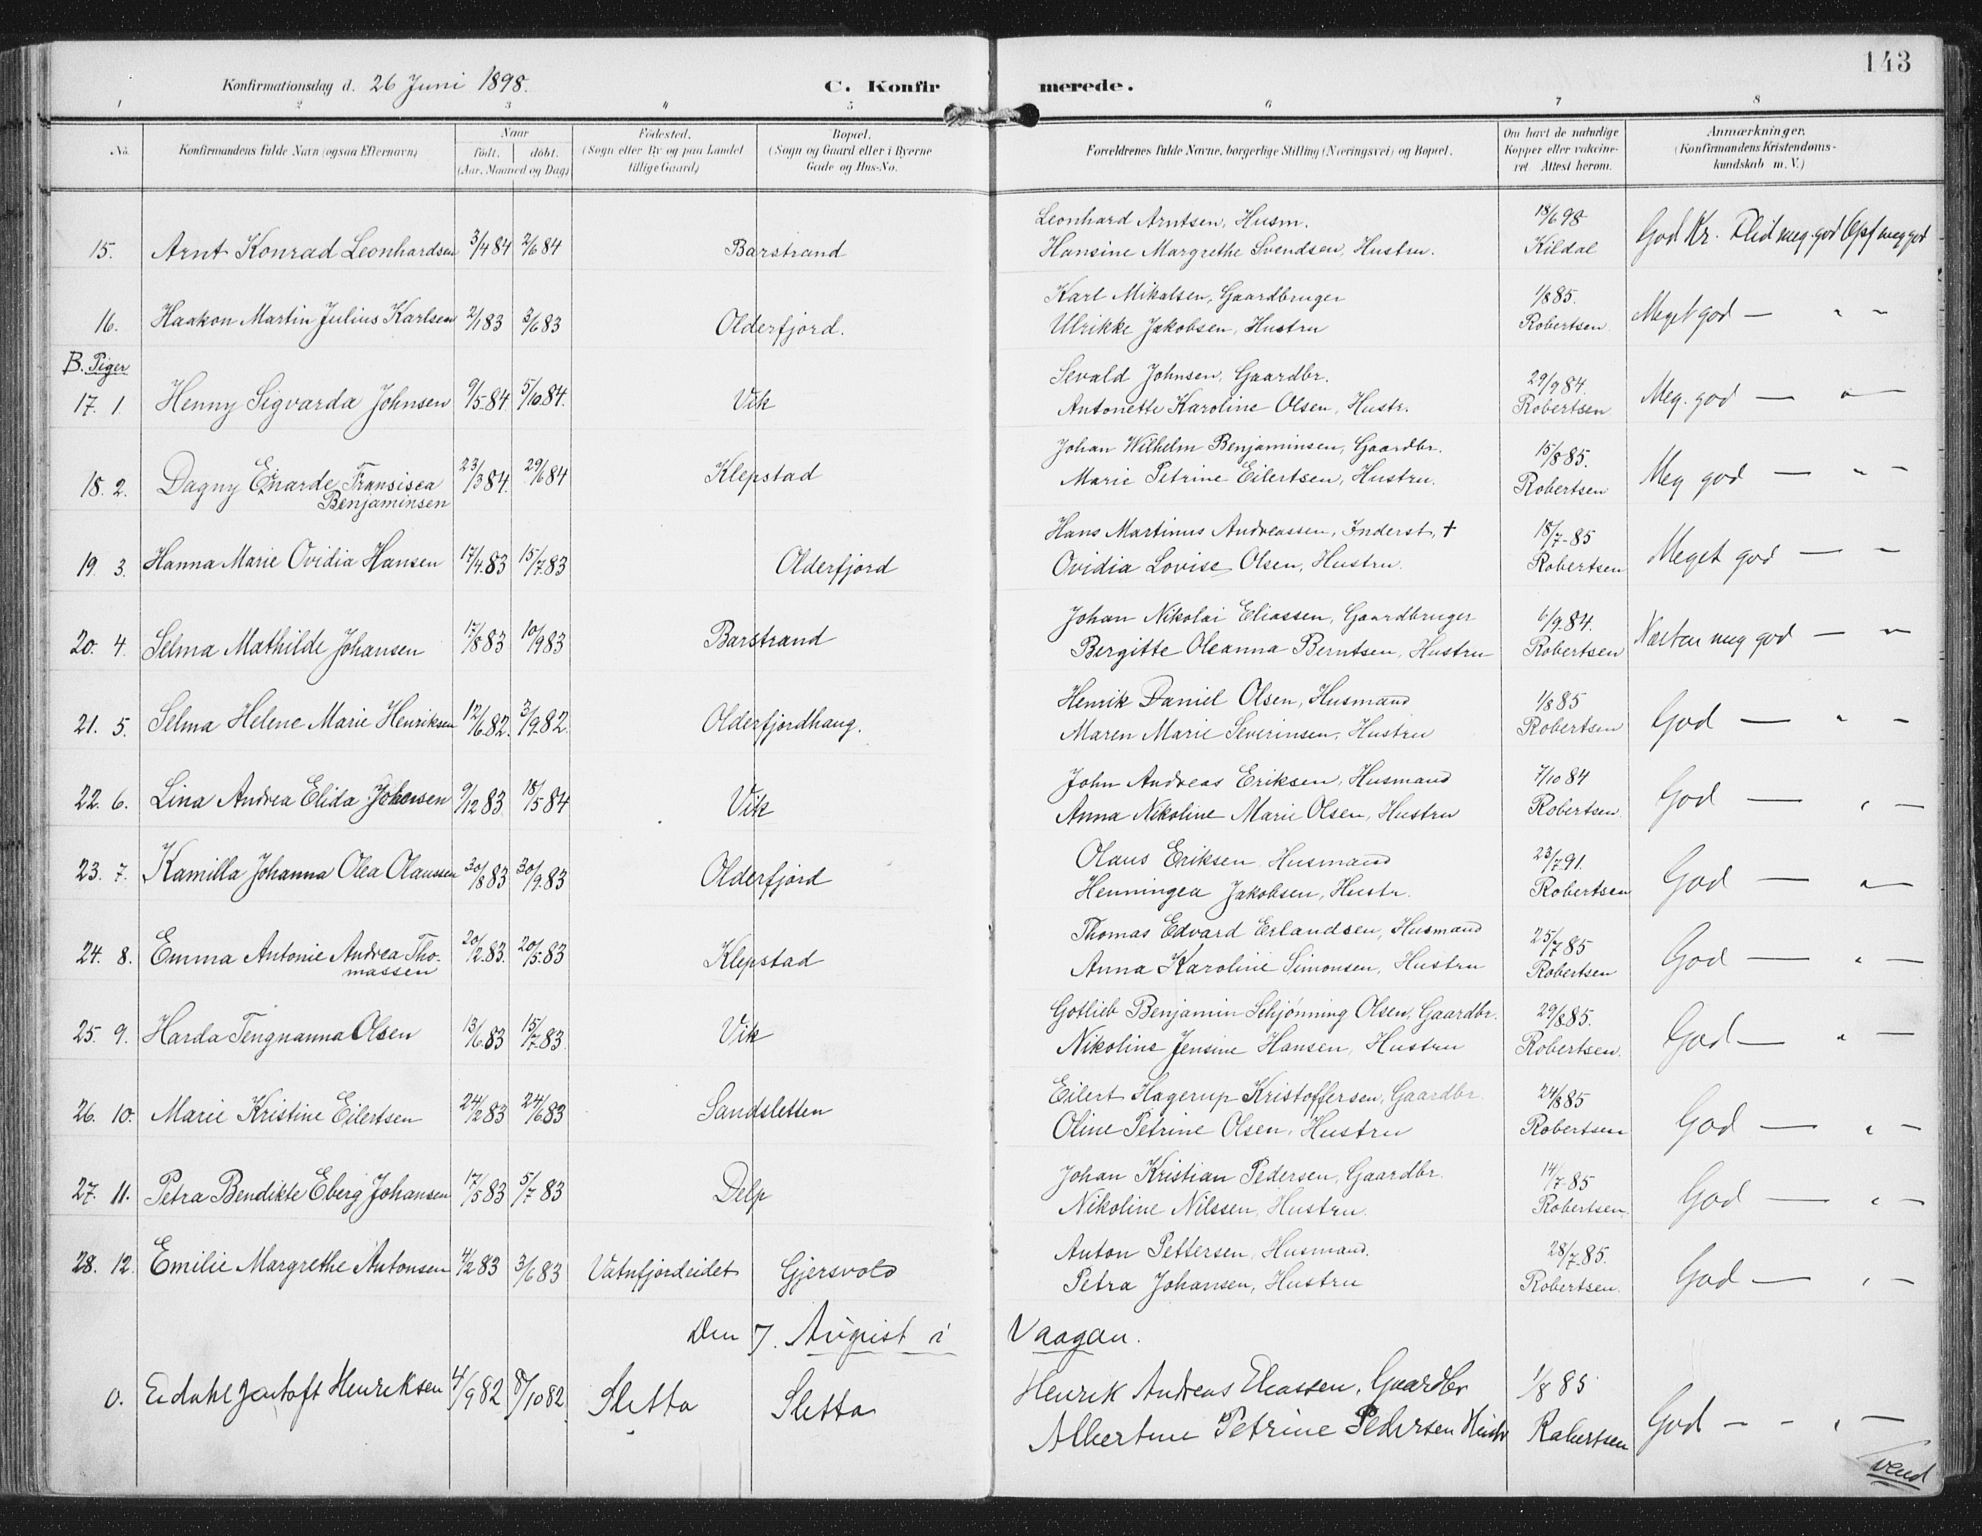 143
Konfirmationsdag d. 26 Juni 1898.
C. Konfirmerede.
1 2 3 4 5 6 7 8
No.
Konfirmandens fulde Navn (ogsaa Efternavn)
Naar
födt. döbt.
(Aar, Maaned og Dag)
Födested.
(Sogn eller By og paa Landet
tillige Gaard)
Bopæl.
(Sogn og Gaard eller i Byerne
Gade og Hus-No.
Forældrenes fulde Navne, borgerlige Stilling (Næringsvei) og Bopæl.
Om havt de naturlige
Kopper eller vakcine-
ret. Attest herom.
Anmærkninger,
(Konfirmandens Kristendoms-
kundskab m. V.)
15. Arnt Konrad Leonhardsen 3/4 84 2/6 84 Barstrand
Leonhard Arntsen, Husm. 18/6 98
Hansine Margrethe Svendsen, Hustru. Kildal
God Kr. Flid meg. god Opf meg god
16. Haakon Martin Julius Karlsen 2/1 83 3/6 83 Olderfjord.
Karl Mikalsen, Gaardbruger 1/8 85.
Ulrikke Jakobsen, Hustru Robertsen.
Meget god — " "
B. Piger
17. 1. Henny Sigvarda Johnsen 9/5 84 5/10 84. Vik
Sevald Johnsen, Gaardbr. 29/9 84.
Antonette Karoline Olsen, Hustr. Robertsen
Meg. god — " —
18. 2. Dagny Einarde Fransisca
Benjaminsen 23/3 84. 29/6 84 Klepstad
Johan Wilhelm Benjaminsen, Gaardbr. 15/8 85.
Marie Petrine Eilertsen, Hustru. Robertsen
Meg god — " —
19. 3. Hanna Marie Ovidia Hansen 17/4 83 15/7 83 Olderfjord
Hans Martinus Andreassen, Inderst, + 18/7 - 85
Ovidia Lovise Olsen, Hustru. Robertsen
Meget god — "
20. 4. Selma Mathilde Johansen 17/8 83 10/9 83 Barstrand
Johan Nikolai Eliassen, Gaardbruger 6/9 84.
Bergitte Oleanna Berntsen, Hustru Robertsen
Næsten meg god — "
21. 5. Selma Helene Marie Henriksen 12/6 82. 3/9 82. Olderfjordhaug.
Henrik Daniel Olsen, Husmand 1/8 85
Maren Marie Severinsen, Hustru Robertsen
God — " —
22. 6. Lina Andrea Elida Johnsen 9/12 83 18/5 84 Vik
John Andreas Eriksen, Husmand 7/10 84
Anna Nikoline Marie Olsen, Hustru Robertsen.
God — " —
23. 7. Kamilla Johanna Olea Olaussen 30/8 83 30/9 83 Olderfjord
Olaus Eriksen, Husmand 23/7 91.
Henningea Jakobsen, Hustr. Robertsen
God — " —
24. 8. Emma Antonie Andrea Tho-
massen 20/2 83. 20/5 83 Klepstad
Thomas Edvard Erlandsen, Husmand 25/7 85
Anna Karoline Simonsen, Hustru Robertsen
God — " —
25. 9. Harda Tengnanna Olsen 13/6 83 15/7 83. Vik
Gotlieb Benjamin Schjønning Olsen, Gaardbr. 29/8 85.
Nikoline Jensine Hansen, Hustru Robertsen.
God — " —
26. 10. Marie Kristine Eilertsen 24/2 83 24/6 83 Sandsletten
Eilert Hagerup Kristoffersen, Gaardbr. 24/8 85
Oline Petrine Olsen, Hustru Robertsen
God — " —
27. 11. Petra Bendikte Eberg Johansen 17/5 83 5/7 83 Delp
Johan Kristian Pedersen, Gaardbr. 14/7 - 85
Nikoline Nilssen, Hustru. Robertsen.
God — " —
28. 12. Emilie Margrethe Antonsen 4/2 83 3/6 83 Vatnfjordeidet Gjersvold
Anton Pettersen, Husmand. 28/7 - 85.
Petra Johansen, Hustru Robertsen.
God — " —
Den 7. August i Vaagan.
0. Eidahl Jentoft Henriksen 4/9 82 8/10 82 Sletta Sletta
Henrik Andreas Eliassen, Gaardbr 1/8 85
Albertine Petrine Pedersen Hustr Robertsen
God — - " —
vend